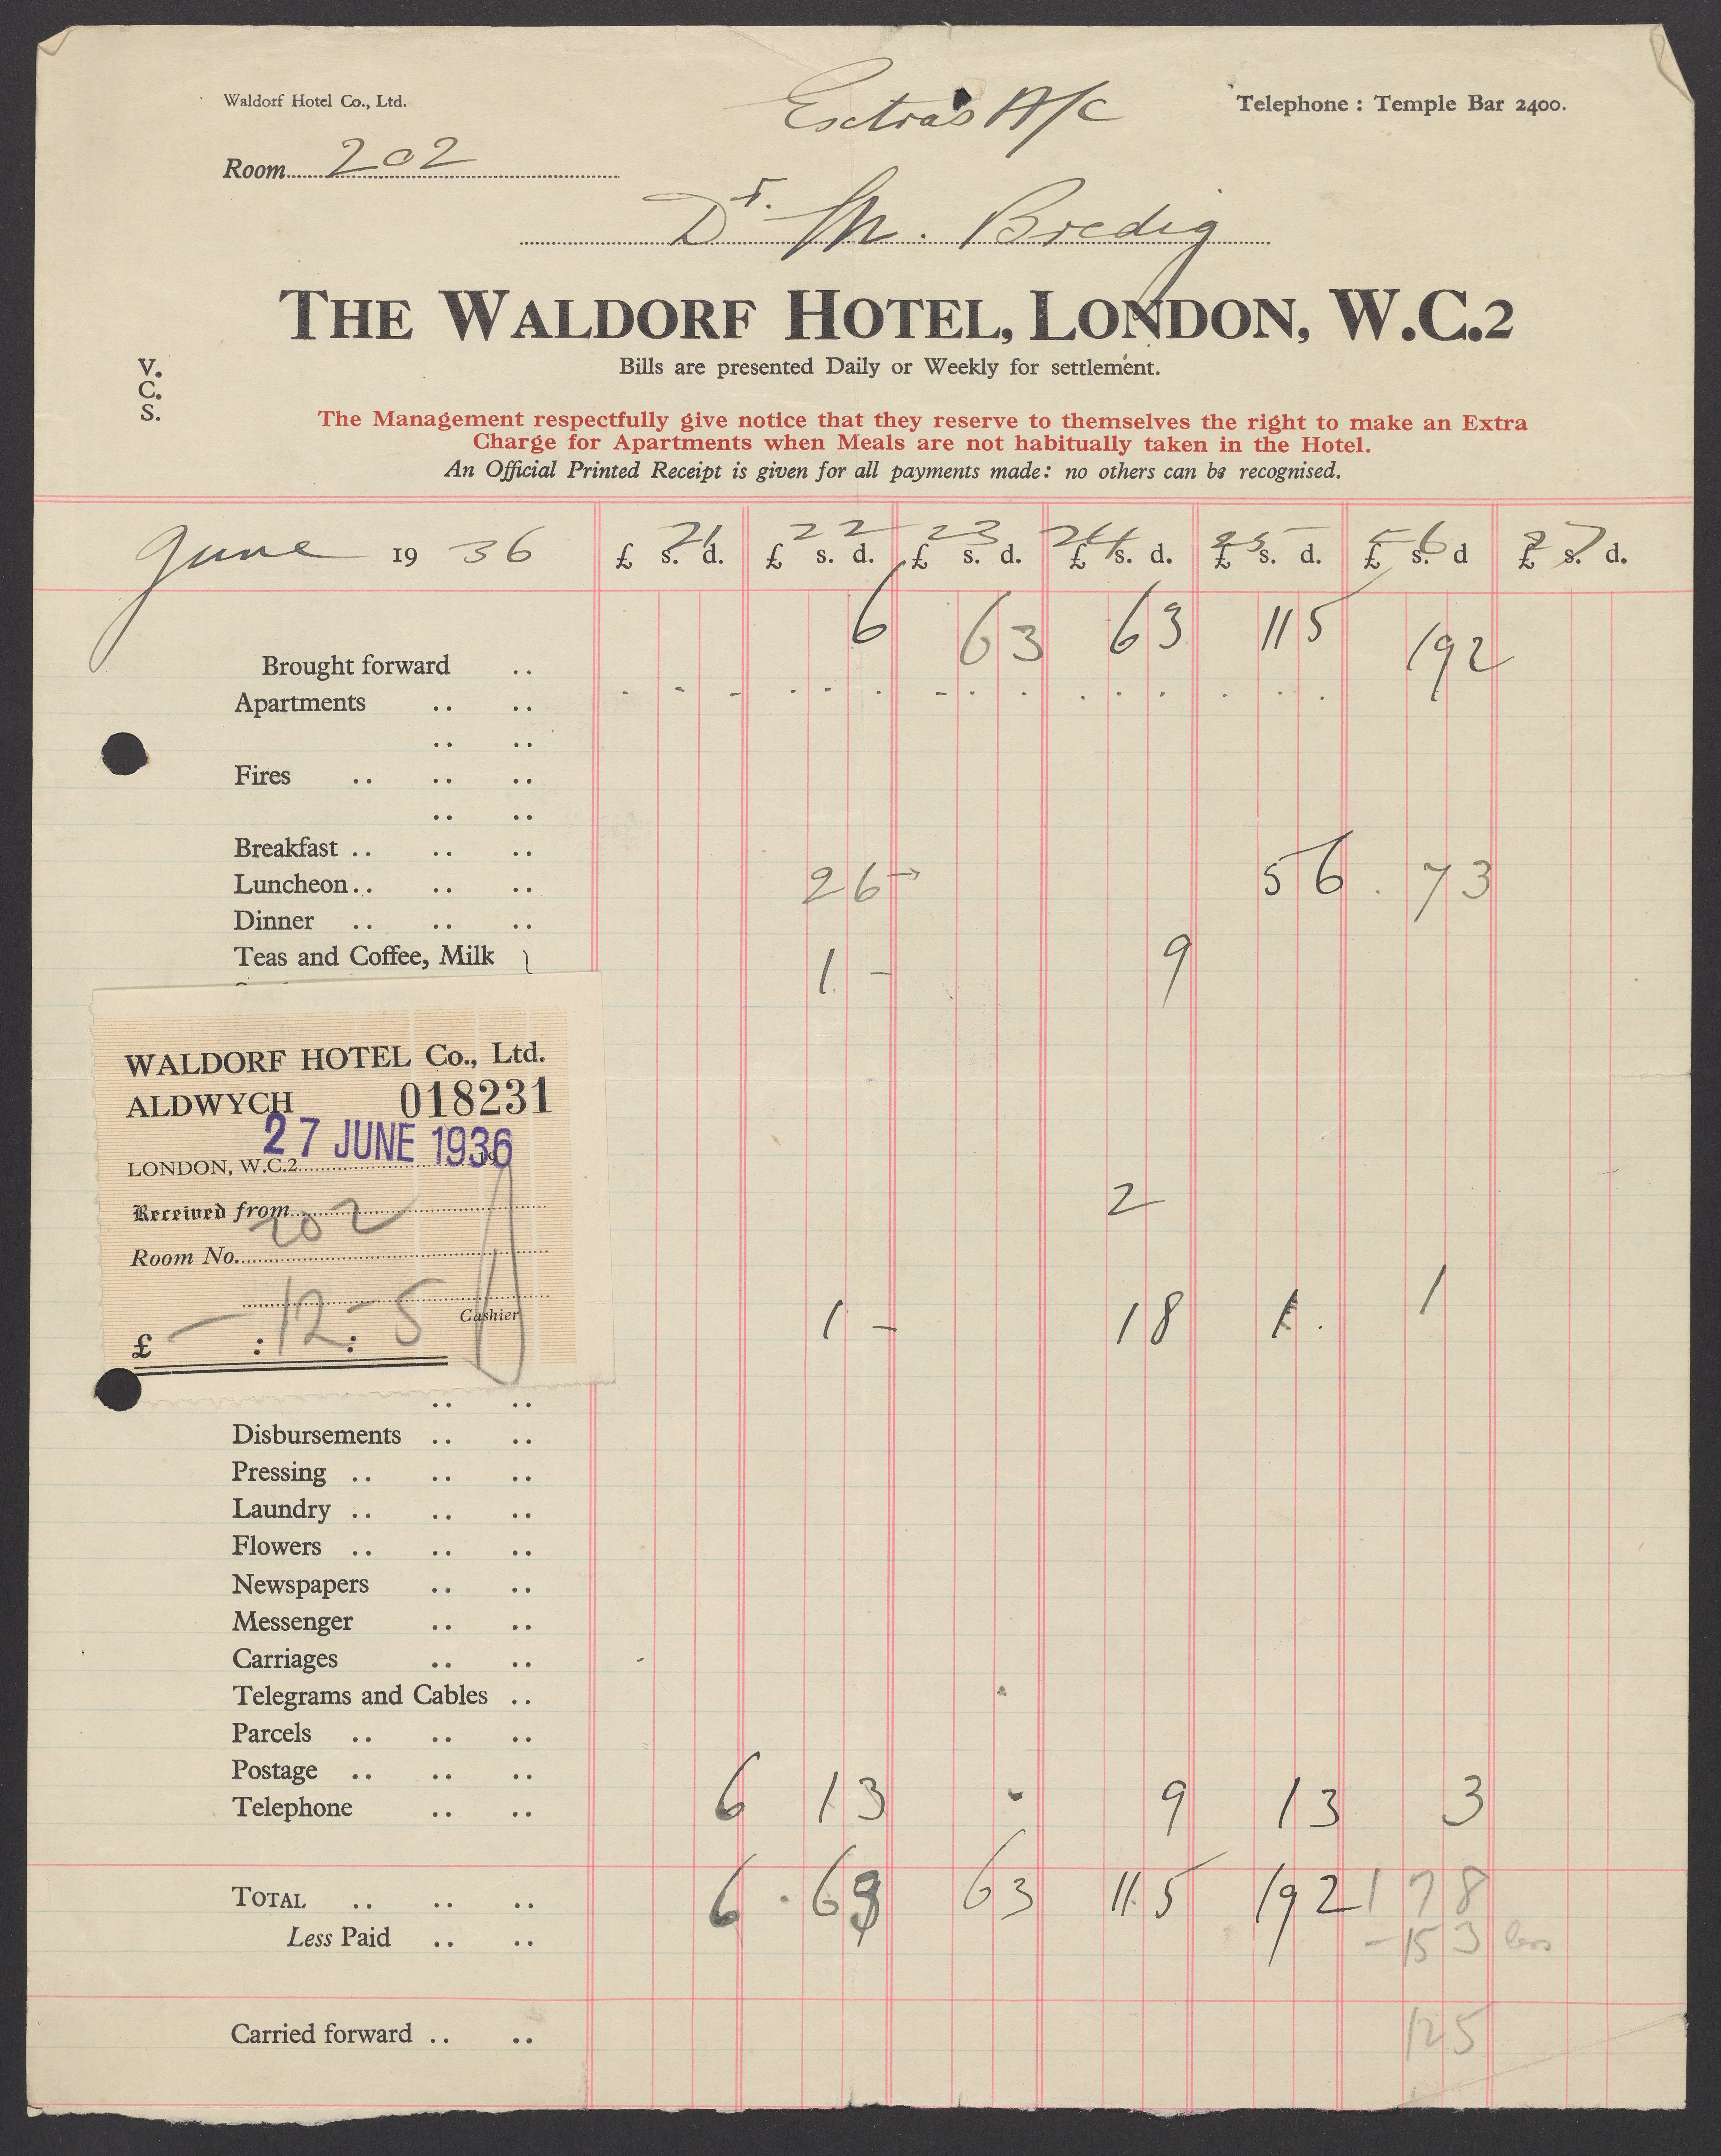 Waldorf Hotel Co., Ltd.
Extras A/C
Telephone : Temple Bar 2400.
Room 202
Dr. M. Bredig
THE WALDORF HOTEL, LONDON, W.C.2
Bills are presented Daily or Weekly for settlement.
V.
C.
S.
The Management respectfully give notice that they reserve to themselves the right to make an Extra
Charge for Apartments when Meals are not habitually taken in the Hotel.
An Official Printed Receipt is given for all payments made: no others can be recognised.
21 22 23 24 25 26 27
June 1936 £ s. d. £ s. d. £ s. d. £ s. d. £ s. d. £ s. d £ s. d.
Brought forward .. 6 6 3 6 3 11 5 19 2
Apartments .. ..
.. ..
Fires .. .. ..
.. ..
Breakfast .. .. ..
Luncheon .. .. .. 2 6 5 6 7 3
Dinner .. .. ..
Teas and Coffee, Milk } 1 - 9
2
1 - 1 8 1 . 1
WALDORF HOTEL Co., Ltd.
ALDWYCH 018231
27 JUNE 1936
LONDON, W.C.2 19
Received from
202
Room No.
Cashier
£ - : 12 : 5
.. ..
Disbursements .. ..
Pressing .. .. ..
Laundry .. .. ..
Flowers .. .. ..
Newspapers .. ..
Messenger .. ..
Carriages .. ..
Telegrams and Cables ..
Parcels .. .. ..
Postage .. .. ..
Telephone .. .. 6 1 3 9 1 3 3
TOTAL .. .. .. 6 6 3 6 3 11 5 19 2 1 7 8
Less Paid .. .. - 15 3 less
Carried forward .. .. 12 5